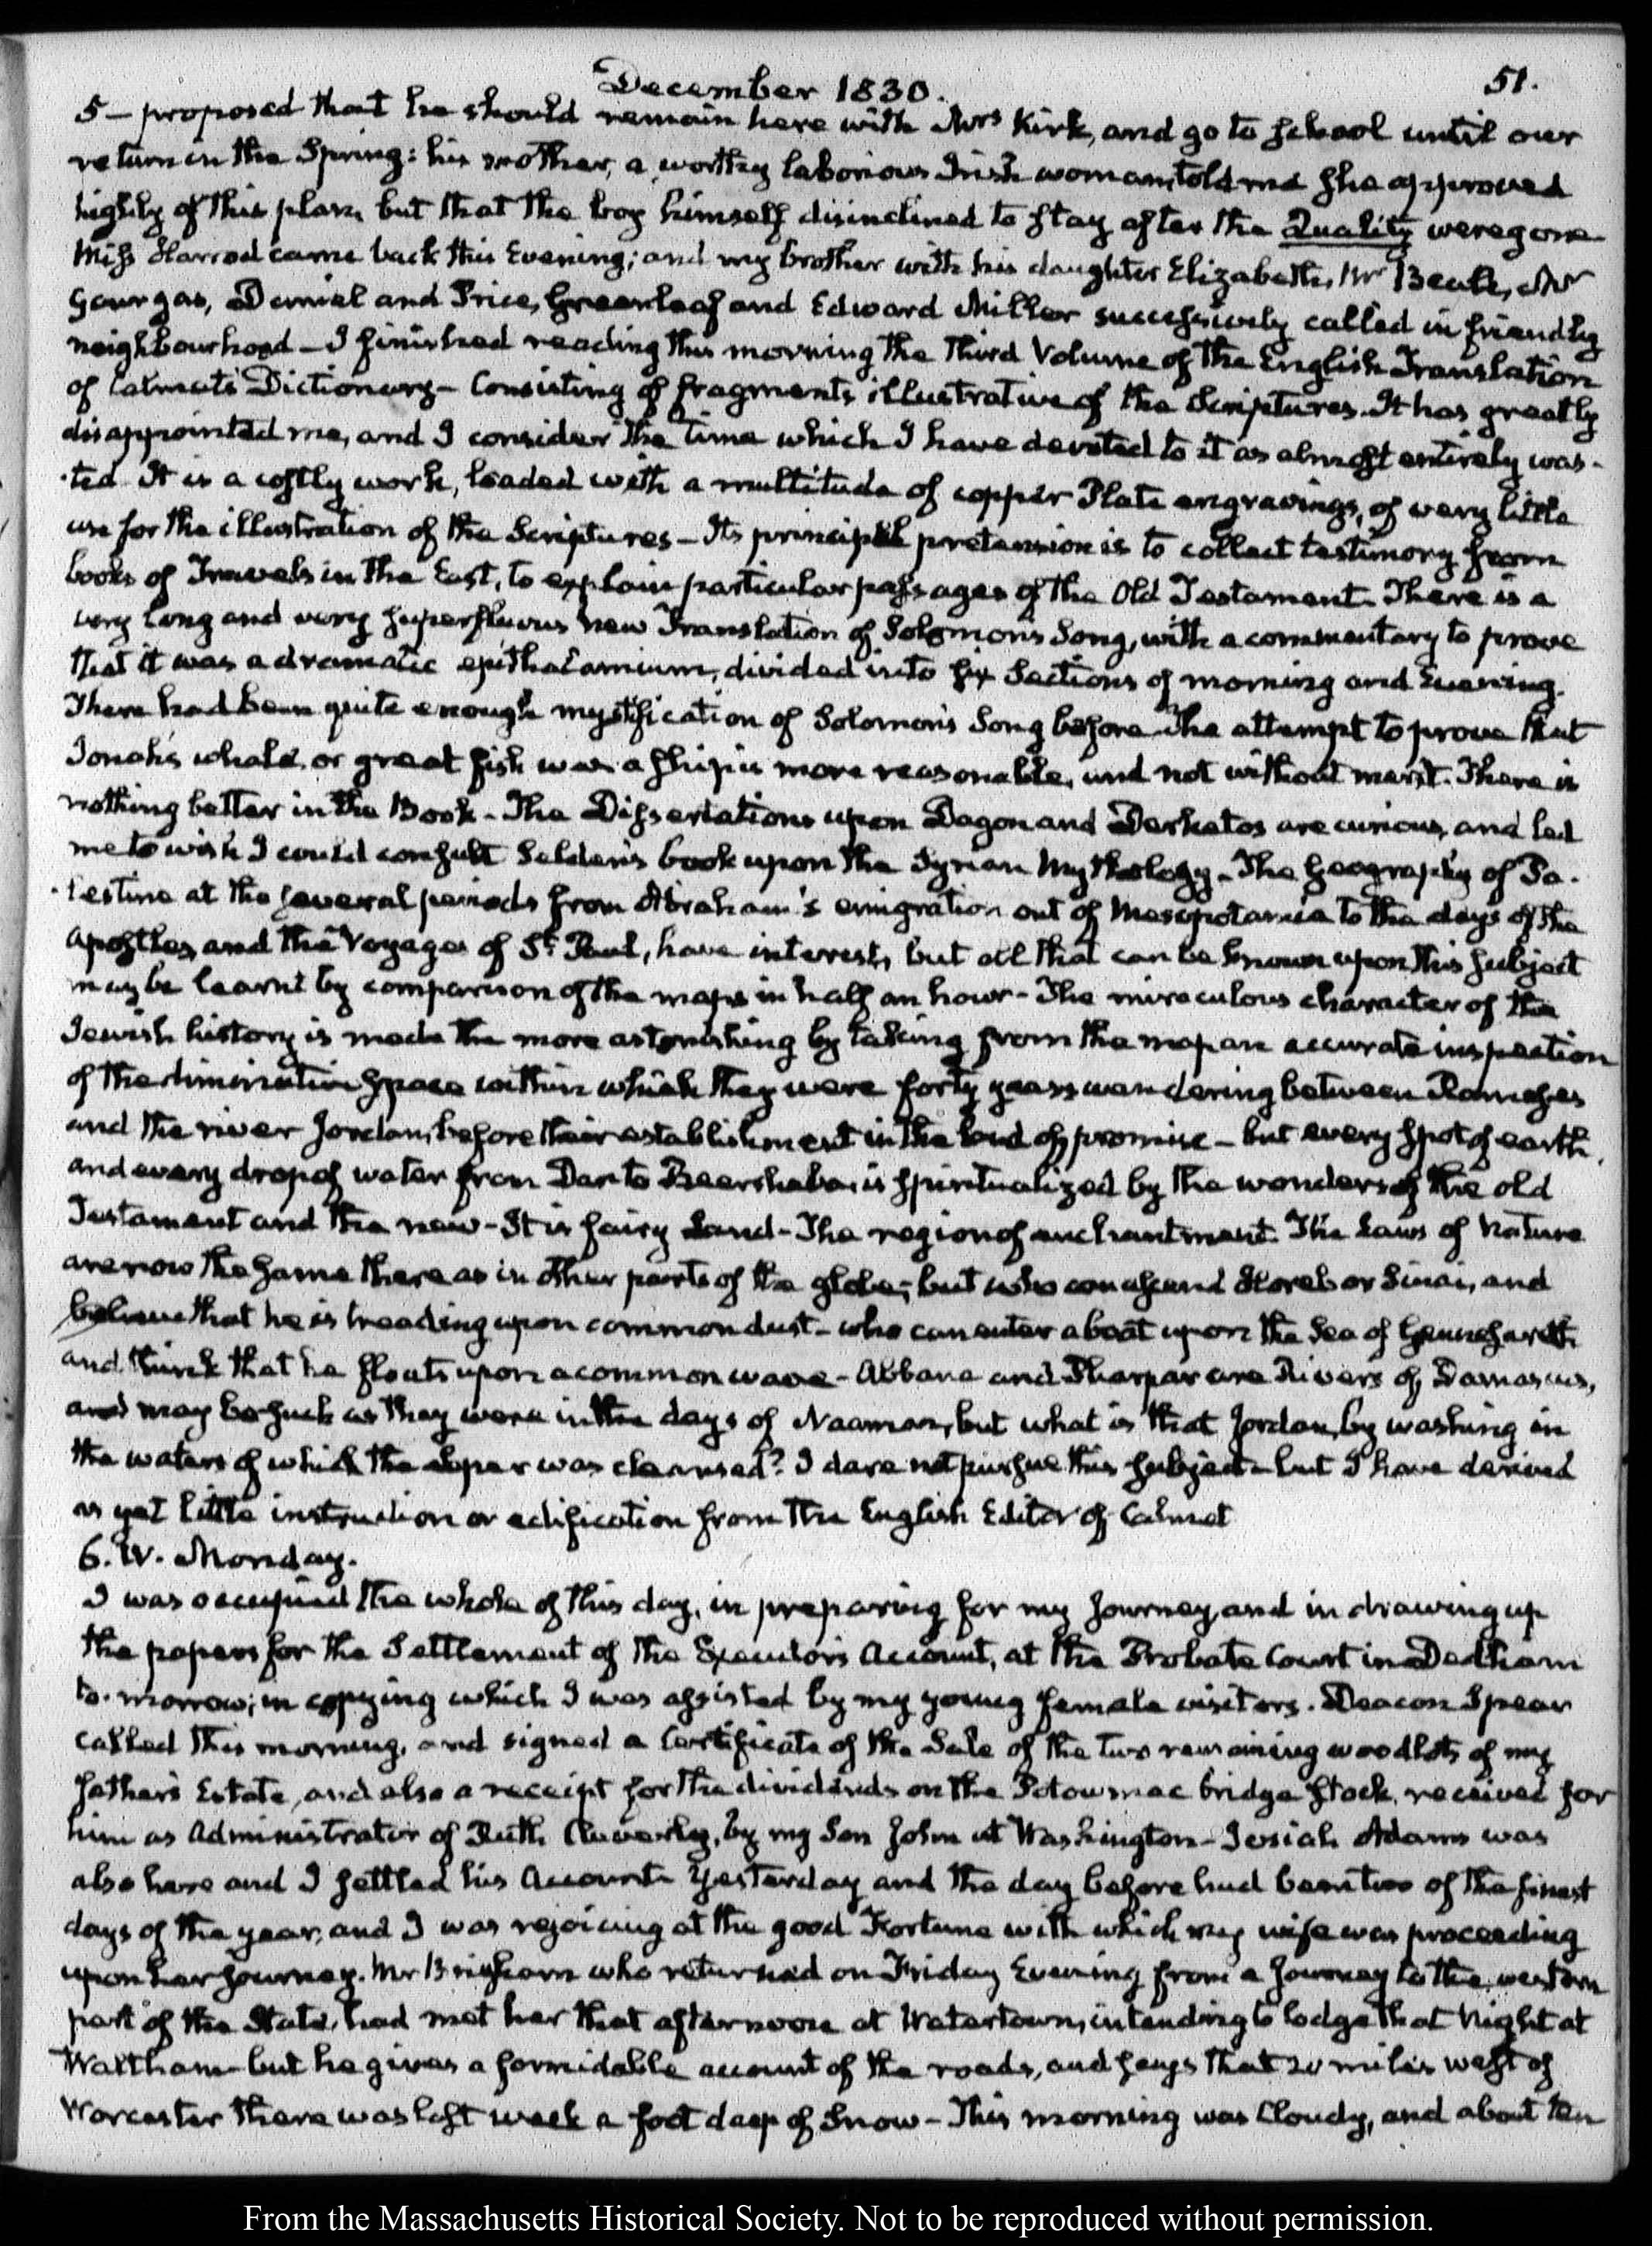 December 1830.
51.
5 — proposed that he should remain here with Mrs Kirk, and go to School until our
return in the Spring: his mother, a worthy laborious Irish woman, told me she approved
highly of this plan, but that the boy himself disinclined to stay after the Quality were gone
Miss Harrod came back this Evening; and my brother with his daughter Elizabeth, Mr Beale, Mr
Gourgas, Daniel and Price Greenleaf and Edward Miller successively called in friendly
neighbourhood — I finished reading this morning the Third Volume of the English Translation
of Calmet's Dictionary — Consisting of fragments illustrative of the Scriptures. It has greatly
disappointed me, and I consider the time which I have devoted to it as almost entirely was-
-ted. It is a costly work, loaded with a multitude of copper Plate engravings, of very little
use for the illustration of the Scriptures — Its principal pretension is to collect testimony from
books of Travels in the East, to explain particular passages of the Old Testament. There is a
very long and very superfluous new Translation of Solomon's Song, with a commentary to prove
that it was a dramatic epithalamium, divided into six Sections of morning and Evening.
There had been quite enough mystification of Solomon's Song before. The attempt to prove that
Jonah's whale, or great fish was a ship is more reasonable, and not without merit. There is
nothing better in the Book — The Dissertations upon Dagon and Derketos are curious, and led
me to wish I could consult Selden's book upon the Syrian Mythology — The Geography of Pa-
-lestine at the several periods from Abraham's emigration out of Mesopotamia to the days of the
Apostles, and the Voyages of St. Paul, have interest, but all that can be known upon this subject
may be learnt by comparison of the maps in half an hour — The miraculous character of the
Jewish history is made the more astonishing by taking from the map an accurate inspection
of the diminutive space within which they were forty years wandering between Rameses
and the river Jordan, before their establishment in the land of promise — but every spot of earth,
and every drop of water from Dan to Beersheba, is spiritualized by the wonders of the old
Testament and the new — It is fairy Land — The region of enchantment. The Laws of Nature
are now the same there as in other parts of the globe; but who can ascend Horeb or Sinai, and
believe that he is treading upon common dust — who can enter a boat upon the Sea of Gennesareth
and think that he floats upon a common wave — Abbana and Pharpar are Rivers of Damascus,
and may be such as they were in the days of Naaman, but what is that Jordan, by washing in
the waters of which the leper was cleansed? I dare not pursue this subject — but I have derived
as yet little instruction or edification from the English Editor of Calmet
6. IV. Monday.
I was occupied the whole of this day, in preparing for my Journey, and in drawing up
the papers for the Settlement of the Executor's Account, at the Probate Court in Dedham
to-morrow; in copying which I was assisted by my young female visitors. Deacon Spear
called this morning, and signed a Certificate of the Sale of the two remaining woodlots of my
father's Estate, and also a receipt for the dividends on the Potowmac bridge Stock, received for
him as Administrator of Ruth, by my Son John at Washington — Josiah Adams was
also here and I settled his Account. Yesterday and the day before had been two of the finest
days of the year, and I was rejoicing at the good Fortune with which my wife was proceeding
upon her Journey. Mr Brigham who returned on Friday Evening from a Journey to the western
part of the State, had met her that afternoon at Watertown, intending to lodge that Night at
Waltham — but he gives a formidable account of the roads, and says that 20 miles west of
Worcester there was last week a foot deep of Snow — This morning was Cloudy, and about ten
From the Massachusetts Historical Society. Not to be reproduced without permission.